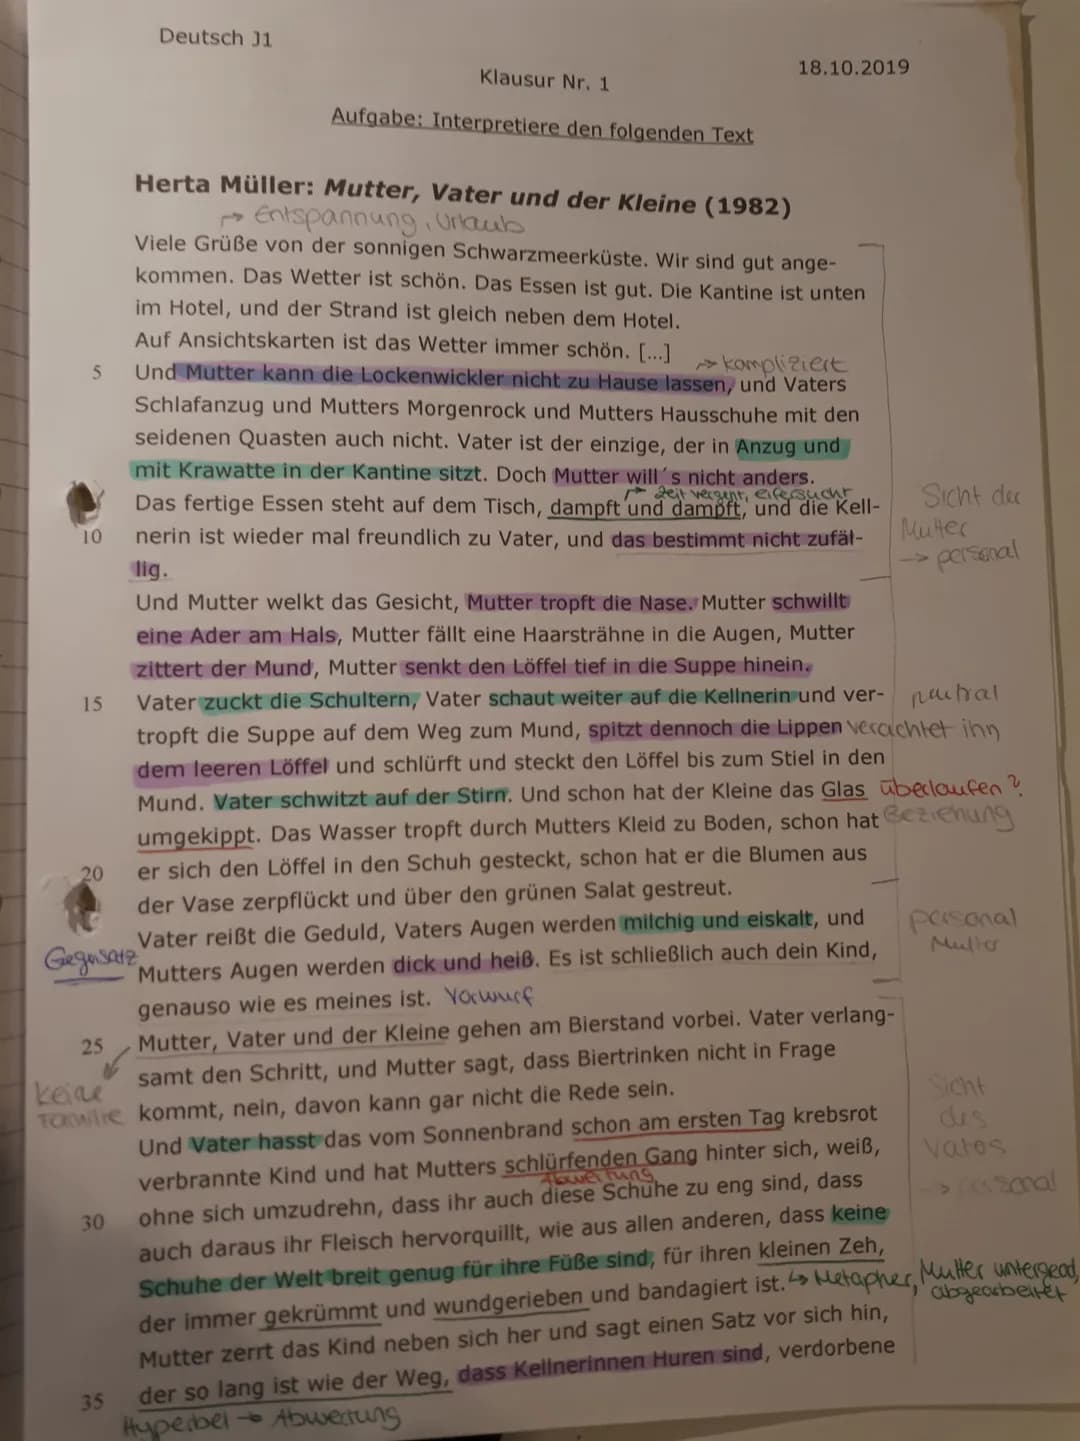 Deutsch J1
18.10.2019
Klausur Nr. 1
Aufgabe: Interpretiere den folgenden Text
Herta Müller: Mutter, Vater und der Kleine (1982)
→ Entspannung, Urlaub
Viele Grüße von der sonnigen Schwarzmeerküste. Wir sind gut ange-
kommen. Das Wetter ist schön. Das Essen ist gut. Die Kantine ist unten
im Hotel, und der Strand ist gleich neben dem Hotel.
Auf Ansichtskarten ist das Wetter immer schön. [...]
→ kompliziert
5 Und Mutter kann die Lockenwickler nicht zu Hause lassen, und Vaters
Schlafanzug und Mutters Morgenrock und Mutters Hausschuhe mit den
seidenen Quasten auch nicht. Vater ist der einzige, der in Anzug und
mit Krawatte in der Kantine sitzt. Doch Mutter will´s nicht anders.
→ Zeit vergeht, eifersucht
Das fertige Essen steht auf dem Tisch, dampft und dampft, und die Kell-
10 nerin ist wieder mal freundlich zu Vater, und das bestimmt nicht zufäl-
lig.
Sicht der
Mutter
→ personal
Und Mutter welkt das Gesicht, Mutter tropft die Nase. Mutter schwillt
eine Ader am Hals, Mutter fällt eine Haarsträhne in die Augen, Mutter
zittert der Mund, Mutter senkt den Löffel tief in die Suppe hinein.
15 Vater zuckt die Schultern, Vater schaut weiter auf die Kellnerin und ver- neutral
tropft die Suppe auf dem Weg zum Mund, spitzt dennoch die Lippen verachtet ihn
dem leeren Löffel und schlürft und steckt den Löffel bis zum Stiel in den
Mund. Vater schwitzt auf der Stirn. Und schon hat der Kleine das Glas überlaufen?
umgekippt. Das Wasser tropft durch Mutters Kleid zu Boden, schon hat Beziehung
20 er sich den Löffel in den Schuh gesteckt, schon hat er die Blumen aus
der Vase zerpflückt und über den grünen Salat gestreut.
Vater reißt die Geduld, Vaters Augen werden milchig und eiskalt, und personal
Mutter
Gegensatz
Mutters Augen werden dick und heiß. Es ist schließlich auch dein Kind,
genauso wie es meines ist. Vorwurf
25 Mutter, Vater und der Kleine gehen am Bierstand vorbei. Vater verlang-
samt den Schritt, und Mutter sagt, dass Biertrinken nicht in Frage
keine
Familie
kommt, nein, davon kann gar nicht die Rede sein.
Sicht
des
Vaters
→ personal
Und Vater hasst das vom Sonnenbrand schon am ersten Tag krebsrot
verbrannte Kind und hat Mutters schlürfenden Gang hinter sich, weiß,
Abwertung
30 ohne sich umzudrehn, dass ihr auch diese Schuhe zu eng sind, dass
auch daraus ihr Fleisch hervorquillt, wie aus allen anderen, dass keine
Schuhe der Welt breit genug für ihre Füße sind, für ihren kleinen Zeh,
der immer gekrümmt und wundgerieben und bandagiert ist. ↳ Metapher, Mutter untergeord,
abgearbeitet
Mutter zerrt das Kind neben sich her und sagt einen Satz vor sich hin,
35 der so lang ist wie der Weg, dass Kellnerinnen Huren sind, verdorbene
Hyperbel → Abwertung